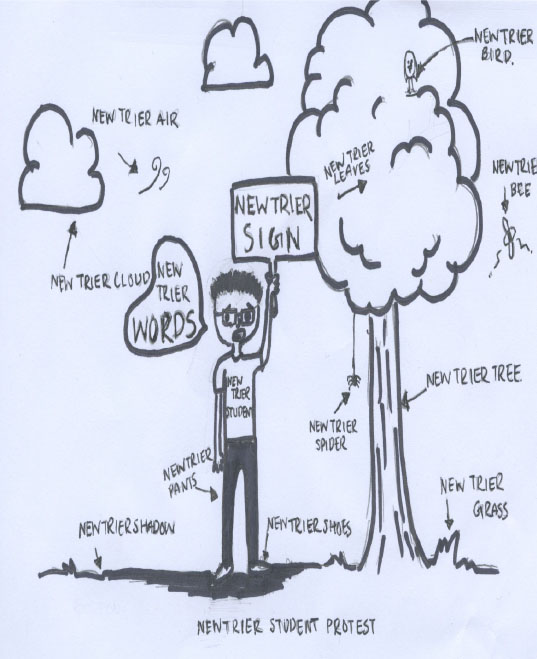 NEW TRIER
BIRD.
NEW TRIER AIR
NEW TRIER
LEAVES
NEW TRIE
BEE
NEW TRIER
SIGN
NEW TRIER CLOUD
NEW
TRIER
WORDS
NEW
TRIER
STUDENT
NEW TRIER TREE
NEW TRIER
SPIDER
NEW TRIER
PANTS
NEW TRIER
GRASS
NEW TRIER SHADOW
NEW TRIER SHOES
NEW TRIER STUDENT PROTEST